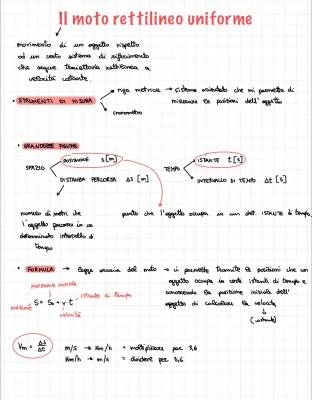 Il moto rettilineo uniforme
movimento di un oggetto rispetto
ad un certo sistema di riferimento
che segue traiettoria rettilinea a
velocità costante.
• STRUMENTI DI MISURA
riga metrica → sistema orientato che mi permette di
misurare le posizioni dell'oggetto
cronometro
• GRANDEZZE FISICHE
SPAZIO
POSIZIONE s [m]
DISTANZA PERCORSA Δs [m]
TEMPO
ISTANTE t [s]
INTERVALLO DI TEMPO Δt [s]
numero di metri che
l'oggetto percorre in un
determinato intervallo di
tempo
punto che l'oggetto occupa in un det. ISTANTE di tempo
• FORMULA → legge oraria del moto → ci permette tramite le posizioni che un
oggetto occupa in certi istanti di tempo e
conoscendo la posizione iniziale dell'
oggetto di calcolare la velocità
(costante)
posizione iniziale
posizione
S = S₀ + v · t
istante di tempo
velocità
Vm = Δs/Δt
m/s → Km/h = moltiplicare per 3,6
Km/h → m/s = dividere per 3,6